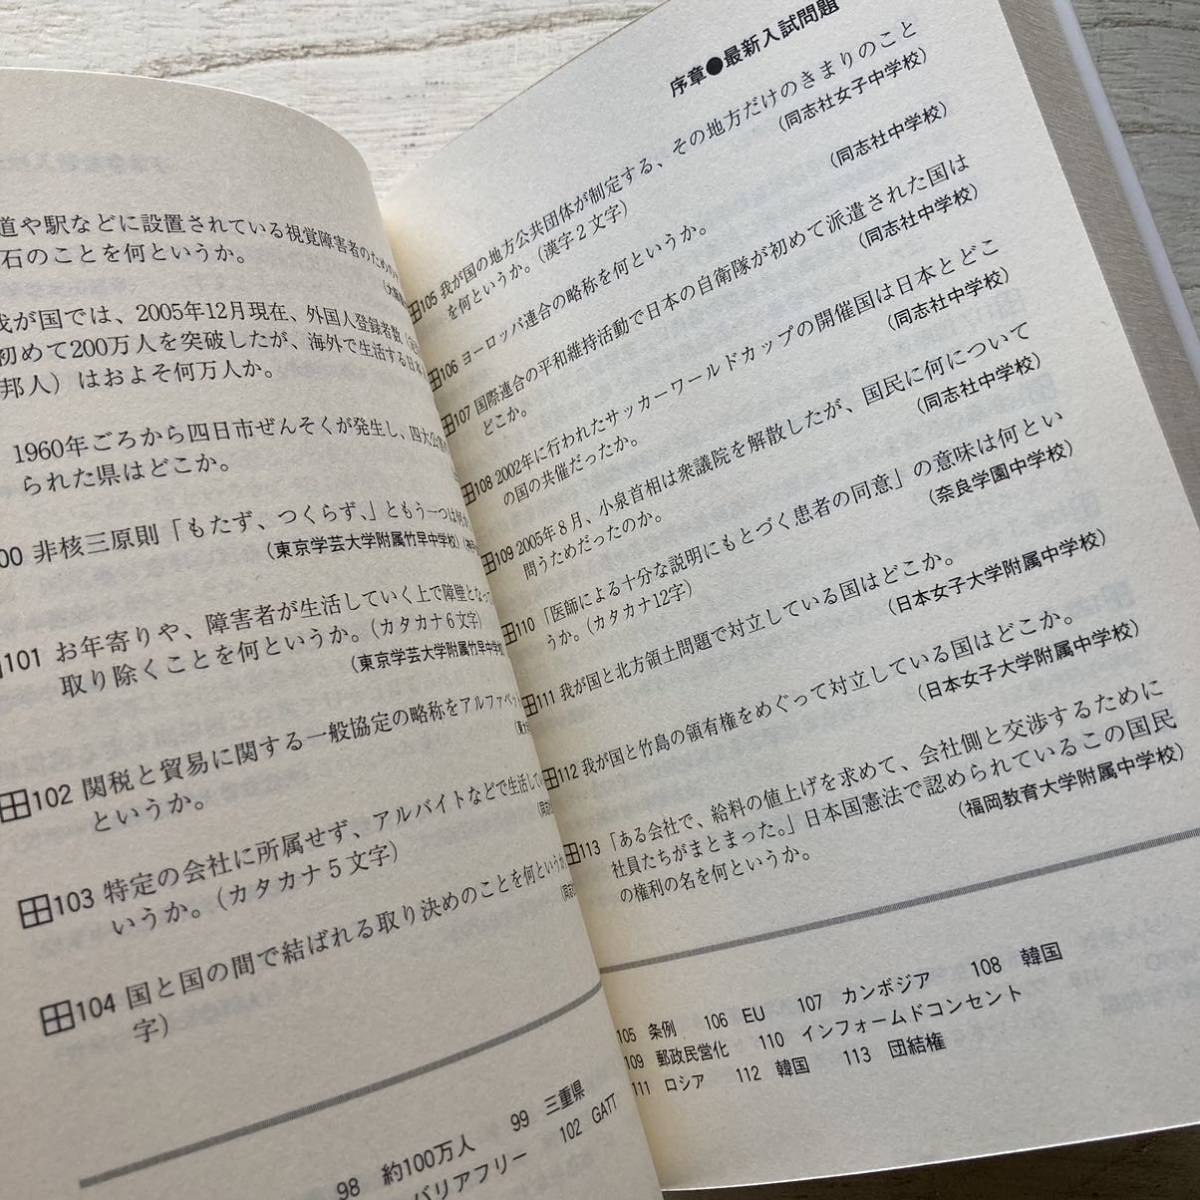 道や駅などに設置されている視覚障害者のための
石のことを何というか。
我が国では、2005年12月現在、外国人登録者数
初めて200万人を突破したが、海外で生活する日本
邦人）はおよそ何万人か。
1960年ごろから四日市ぜんそくが発生し、四大公害
られた県はどこか。
00 非核三原則「もたず、つくらず、」ともう一つは何か
（東京学芸大学附属竹早中学校）
101 お年寄りや、障害者が生活していく上で障壁となっ
取り除くことを何というか。（カタカナ6文字）
（東京学芸大学附属竹早中学校
102 関税と貿易に関する一般協定の略称をアルファベット
というか。
103 特定の会社に所属せず、アルバイトなどで生活して
いうか。（カタカナ5文字）
104 国と国の間で結ばれる取り決めのことを何というか
字）
98 約100万人 99 三重県
バリアフリー 102 GATT
序章●最新入試問題
105 我が国の地方公共団体が制定する、その地方だけのきまりのこと
を何というか。（漢字2文字）
（同志社女子中学校）
106 ヨーロッパ連合の略称を何というか。
（同志社中学校）
107 国際連合の平和維持活動で日本の自衛隊が初めて派遣された国は
どこか。
（同志社中学校）
108 2002年に行われたサッカーワールドカップの開催国は日本とどこ
の国の共催だったか。
（同志社中学校）
109 2005年8月、小泉首相は衆議院を解散したが、国民に何について
問うためだったのか。
（同志社中学校）
110 「医師による十分な説明にもとづく患者の同意」の意味は何とい
うか。（カタカナ12字）
（奈良学園中学校）
111 我が国と北方領土問題で対立している国はどこか。
（日本女子大学附属中学校）
112 我が国と竹島の領有権をめぐって対立している国はどこか。
（日本女子大学附属中学校）
113 「ある会社で、給料の値上げを求めて、会社側と交渉するために
社員たちがまとまった。」日本国憲法で認められているこの国民
の権利の名を何というか。
（福岡教育大学附属中学校）
105 条例 106 EU 107 カンボジア 108 韓国
109 郵政民営化 110 インフォームドコンセント
111 ロシア 112 韓国 113 団結権